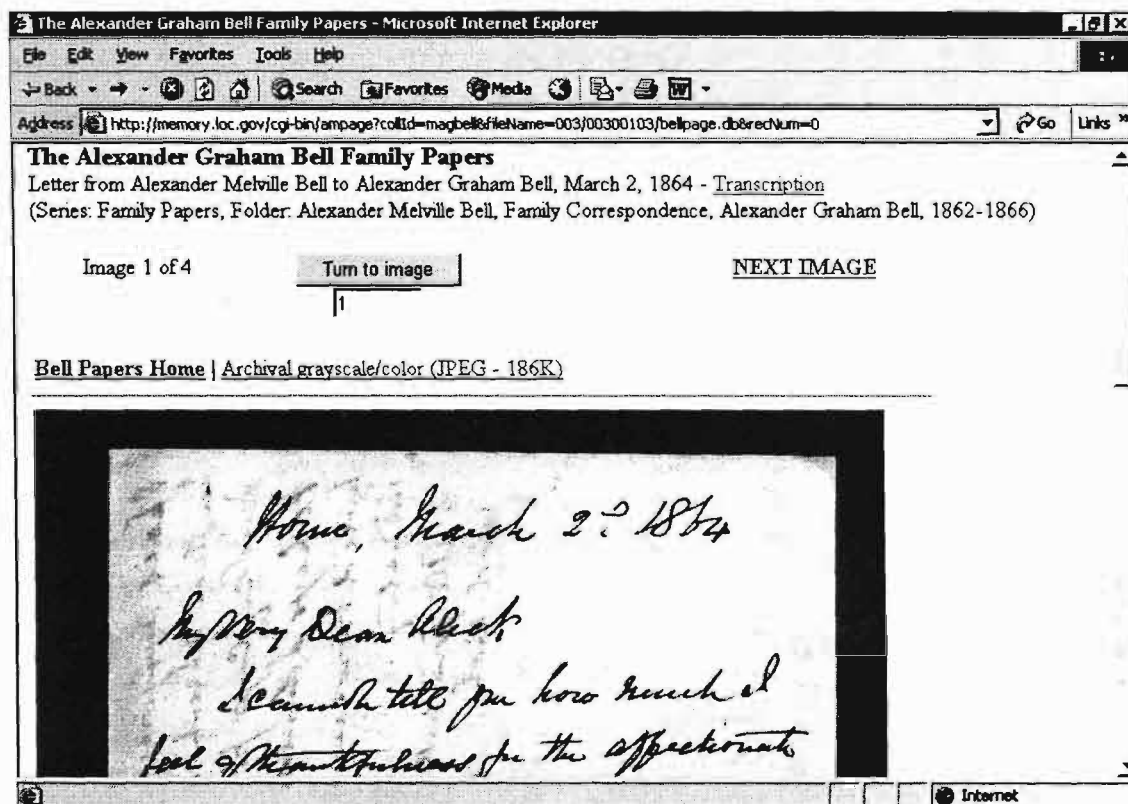 The Alexander Graham Bell Family Papers - Microsoft Internet Explorer
File Edit View Favorites Tools Help
Back Search Favorites Media
Address http://memory.loc.gov/cgi-bin/ampage?collId=magbell&fileName=003/00300103/bellpage.db&recNum=0 Go Links »
The Alexander Graham Bell Family Papers
Letter from Alexander Melville Bell to Alexander Graham Bell, March 2, 1864 - Transcription
(Series: Family Papers, Folder: Alexander Melville Bell, Family Correspondence, Alexander Graham Bell, 1862-1866)
Image 1 of 4 Turn to image NEXT IMAGE
1
Bell Papers Home | Archival grayscale/color (JPEG - 186K)
Home, March 2d 1864
My Very Dear Aleck
I cannot tell you how much I
feel of thankfulness for the affectionate
Internet